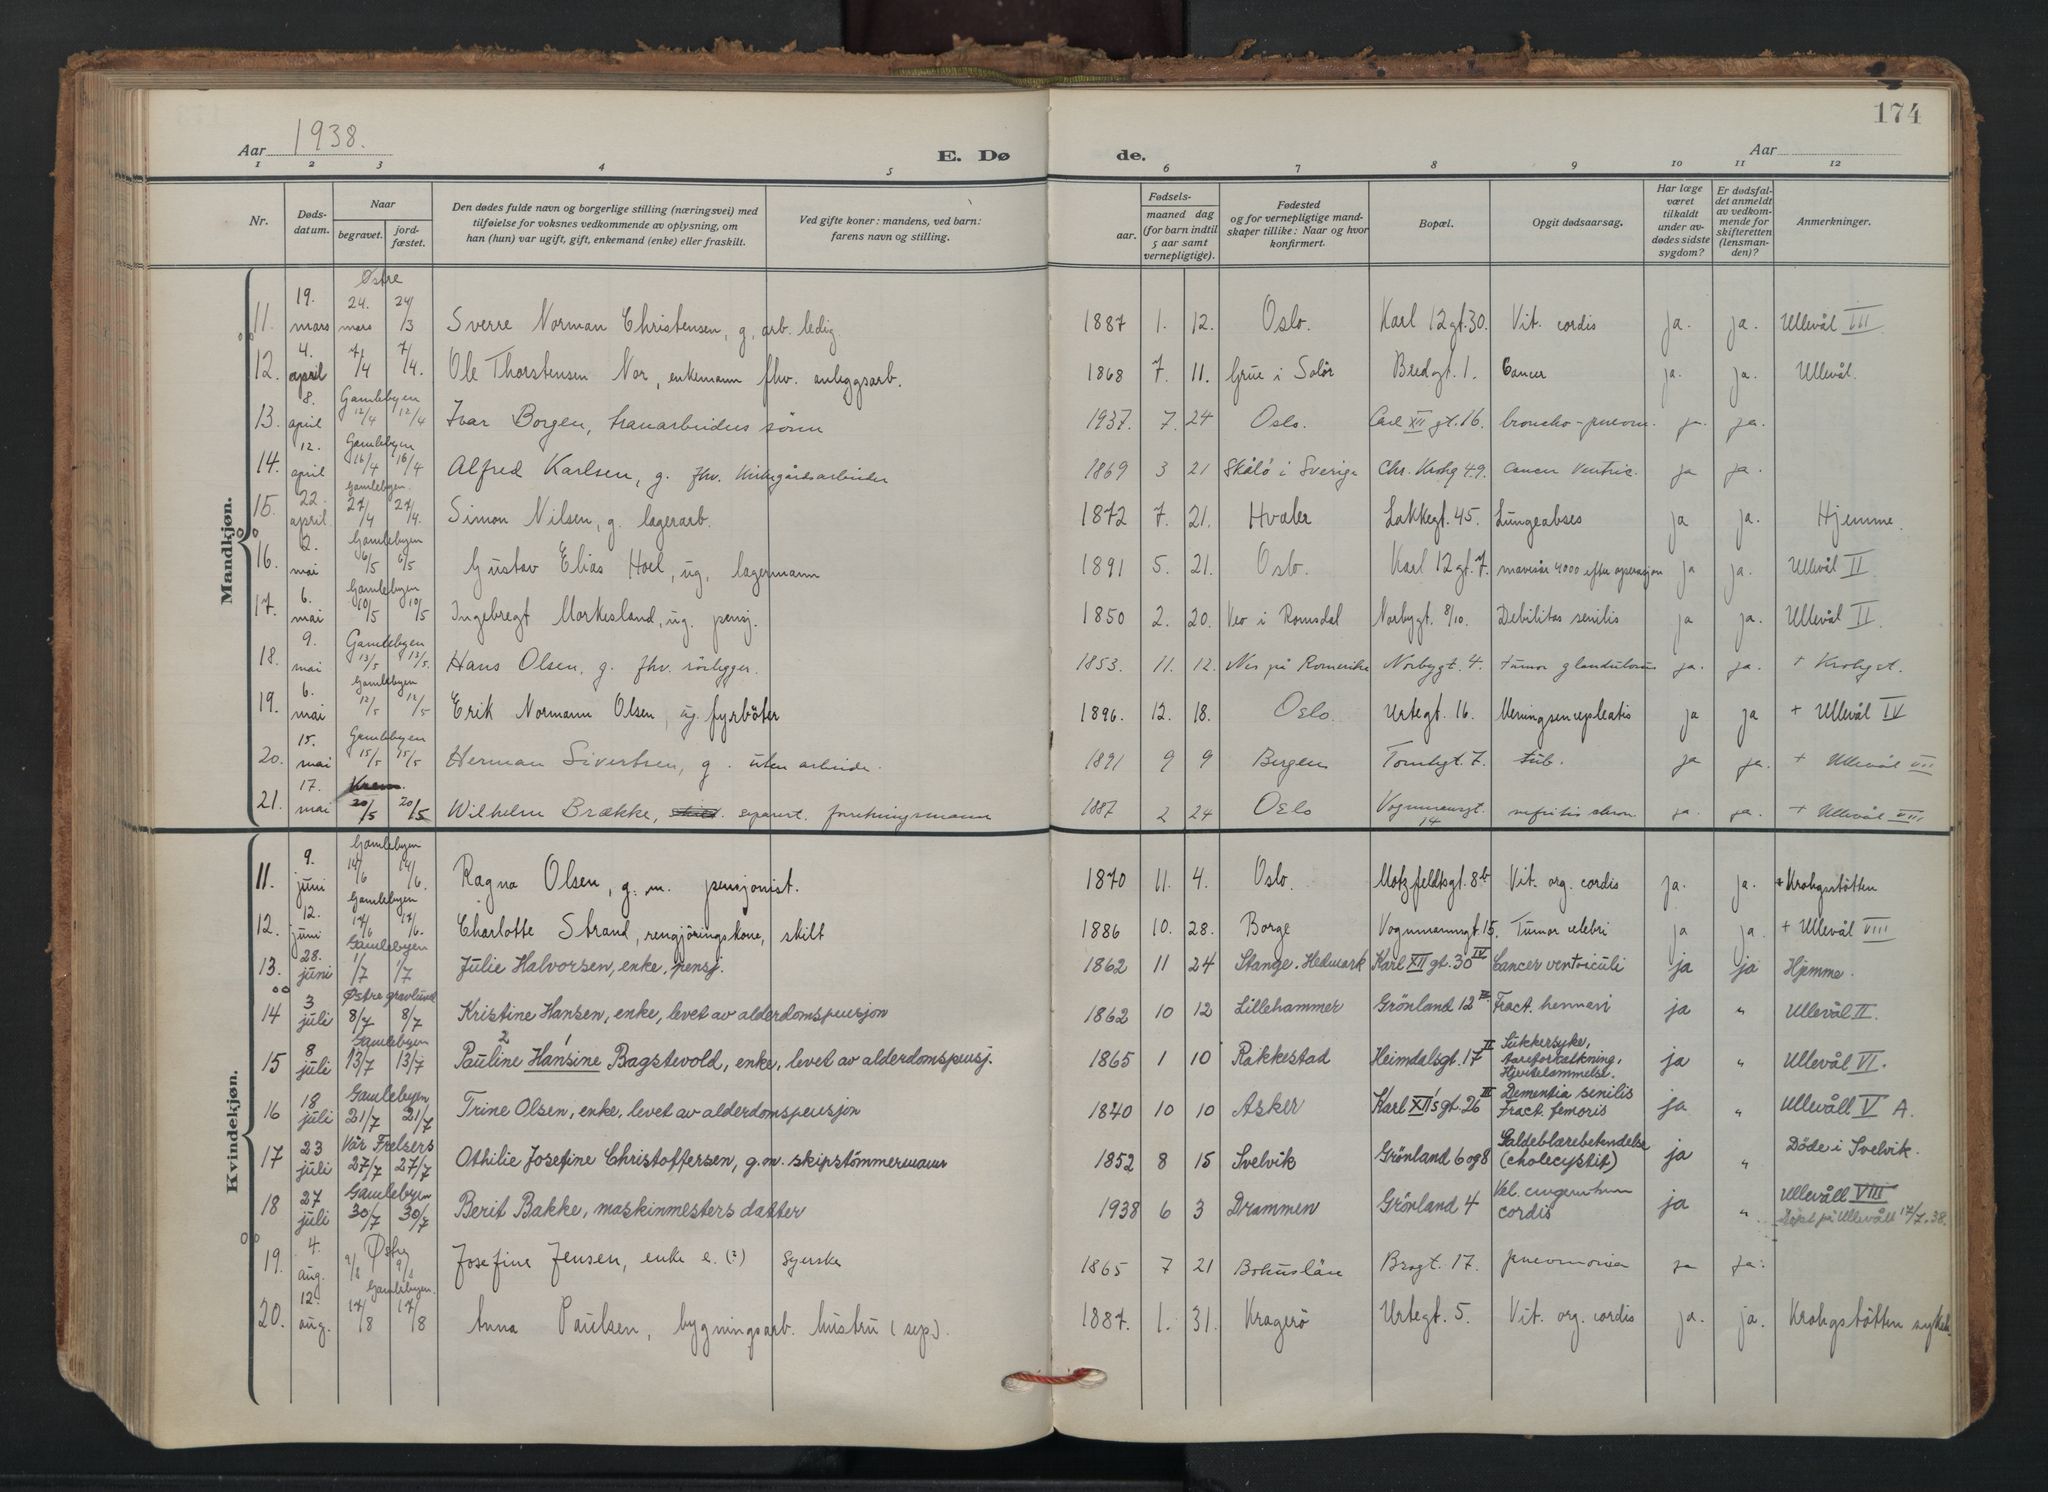 174
Aar 1938.
E. Dø de.
Aar
1 2 3 4 5 6 7 8 9 10 11 12
Nr. Døds-datum. Naar begravet. jord-fæstet. Den dødes fulde navn og borgerlige stilling (næringsvei) med tilføielse for voksnes vedkommende av oplysning, om han (hun) var ugift, gift, enkemand (enke) eller fraskilt. Ved gifte koner: mandens, ved barn: farens navn og stilling. Fødsels- aar. maaned dag (for barn indtil 5 aar samt vernepligtige). Fødested og for vernepligtige mand-skaper tillike: Naar og hvor konfirmert. Bopæl. Opgit dødsaarsag. Har læge været tilkaldt under av-dødes sidste sygdom? Er dødsfal-det anmeldt av vedkom-mende for skifteretten (lensman-den)? Anmerkninger.
Mandkjøn.
Østre
11. 19. mars 24. mars 24/3 Sverre Norman Christensen, g. arb. ledig 1887 1. 12. Oslo. Karl 12 gt. 30. Vit. cordis ja. ja. Ullevål III
12. 4. april 7/4 7/4. Ole Thorstensen Nor, enkemann fhv. anleggsarb. 1868 7. 11. Grue i Solör Bredgt. 1. Cancer ja. ja. Ullevål.
Gamlebyen
13. 8. april 12/4 12/4 Ivar Borgen, sönn 1937. 7. 24 Oslo. Carl XII gt. 16. broncho-pneum. ja. ja.
Gamlebyen
14. 12. april 16/4 16/4 Alfred Karlsen, g. fhv. kirkegårdsarbeider 1869 3 21 i Sverige Chr. Krohg 49. Cancer Ventric. ja ja.
Gamlebyen
15. 22. april. 27/4 27/4. Simon Nilsen, g. lagerarb. 1872 7. 21. Hvaler Lakkegt. 45. Lungeabses ja ja. Hjemme.
Gamlebyen
16. 2. mai 6/5 6/5 Gustav Elias Hoel, ug. lagermann 1891 5. 21. Oslo. Karl 12 gt. 7. mavesår efter operasjon ja ja. Ullevål II
Gamlebyen
17. 6. mai 10/5 10/5 Ingebregt Morkesland, ug. pensj. 1850 2. 20. Veo i Romsdal Norbygt. 8/10. Debilitas senilis ja ja. Ullevål II
Gamlebyen
18. 9. mai 13/5 13/5. Hans Olsen, g. fhv. rörlegger. 1853. 11. 12. Nes på Romerike Norbygt. 4. tumor glandulorus ja. ja. + Krohgst.
Gamlebyen
19. 6. mai 12/5 12/5 Erik Normann Olsen, ug. fyrböter 1896. 12. 18. Oslo. Urtegt. 16. ja ja + Ullevål IV
Gamlebyen
20. 15. mai 15/5 15/5 Herman Sivertsen, g. uten arbeide. 1891 9 9 Bergen Tomtegt. 7. tub. ja ja. + Ullevål VII
Krem.
21. 17. mai 20/5 20/5 Wilhelm Brække, skilt. separert. forretningsmann 1887 2 24 Oslo Vognmannsgt. 14 nefritis chron ja. ja. + Ullevål VIII
Kvindekjøn.
Gamlebyen
11. 9. juni 14/6 14/6. Ragna Olsen, g. m. pensjonist. 1870 11. 4. Oslo. Motzfeldtsgt. 8b Vit. org. cordis ja. ja. + Krohgstötten
Gamlebyen
12. 12. juni 17/6 17/6. Charlotte Strand, rengjöringskone, skilt 1886 10. 28. Borge Vognmanngt. 15. Tumor celebri ja ja. + Ullevål VIII
Gamlebyen
13. 28. juni 1/7 1/7 Julie Halvorsen, enke, pensj. 1862 11 24 Stange. Hedmark Karl XII gt. 30 IV Cancer ventriculi ja ja Hjemme.
Østre gravlund
14 3 juli 8/7 8/7 Kristine Hansen, enke, levet av alderdomspensjon 1862 10 12 Lillehammer Grönland 12 Fract. humeri ja " Ullevål II.
Gamlebyen
15 8 juli 13/7 13/7 2 1 Pauline Hansine Bagstevold, enke, levet av alderdomspensj. 1865 1 10 Rakkestad Heimdalsgt. 17 II Sukkersyke, Aareforkalkning, Hjertelammelse. ja " Ullevål VI.
Gamlebyen
16 18 juli 21/7 21/7 Trine Olsen, enke, levet av alderdomspensjon 1840 10 10 Asker Karl XII's gt. 26 III Dementia senilis Fract. femoris ja " Ullevåll V A.
Vår Frelsers
17 23 juli 27/7 27/7 Othilie Josefine Christoffersen, g.m. skipstömmermann 1852 8 15 Svelvik Grönland 6 og 8 Galdeblærebetendelse (cholecystit) ja " Döde i Svelvik.
Gamlebyen
18 27 juli 30/7 30/7 Berit Bakke, maskinmesters datter 1938 6 3 Drammen Grönland 4 cordis ja " Ullevåll VIII Döpt på Ullevåll 17/7.38.
Østre
19. 4. aug. 9/8 9/8 Josefine Jensen, enke e. (?) syerske 1865 7 21 Bohuslän Brogt. 17. pneumonia ja ja.
Gamlebyen.
20. 12. aug. 17/8 17/8 Anna Paulsen, bygningsarb. hustru (sep.). 1887. 1. 31. Kragerö Urtegt. 5. Vit. org. cordis ja. ja. Krohgstötten sykeh.